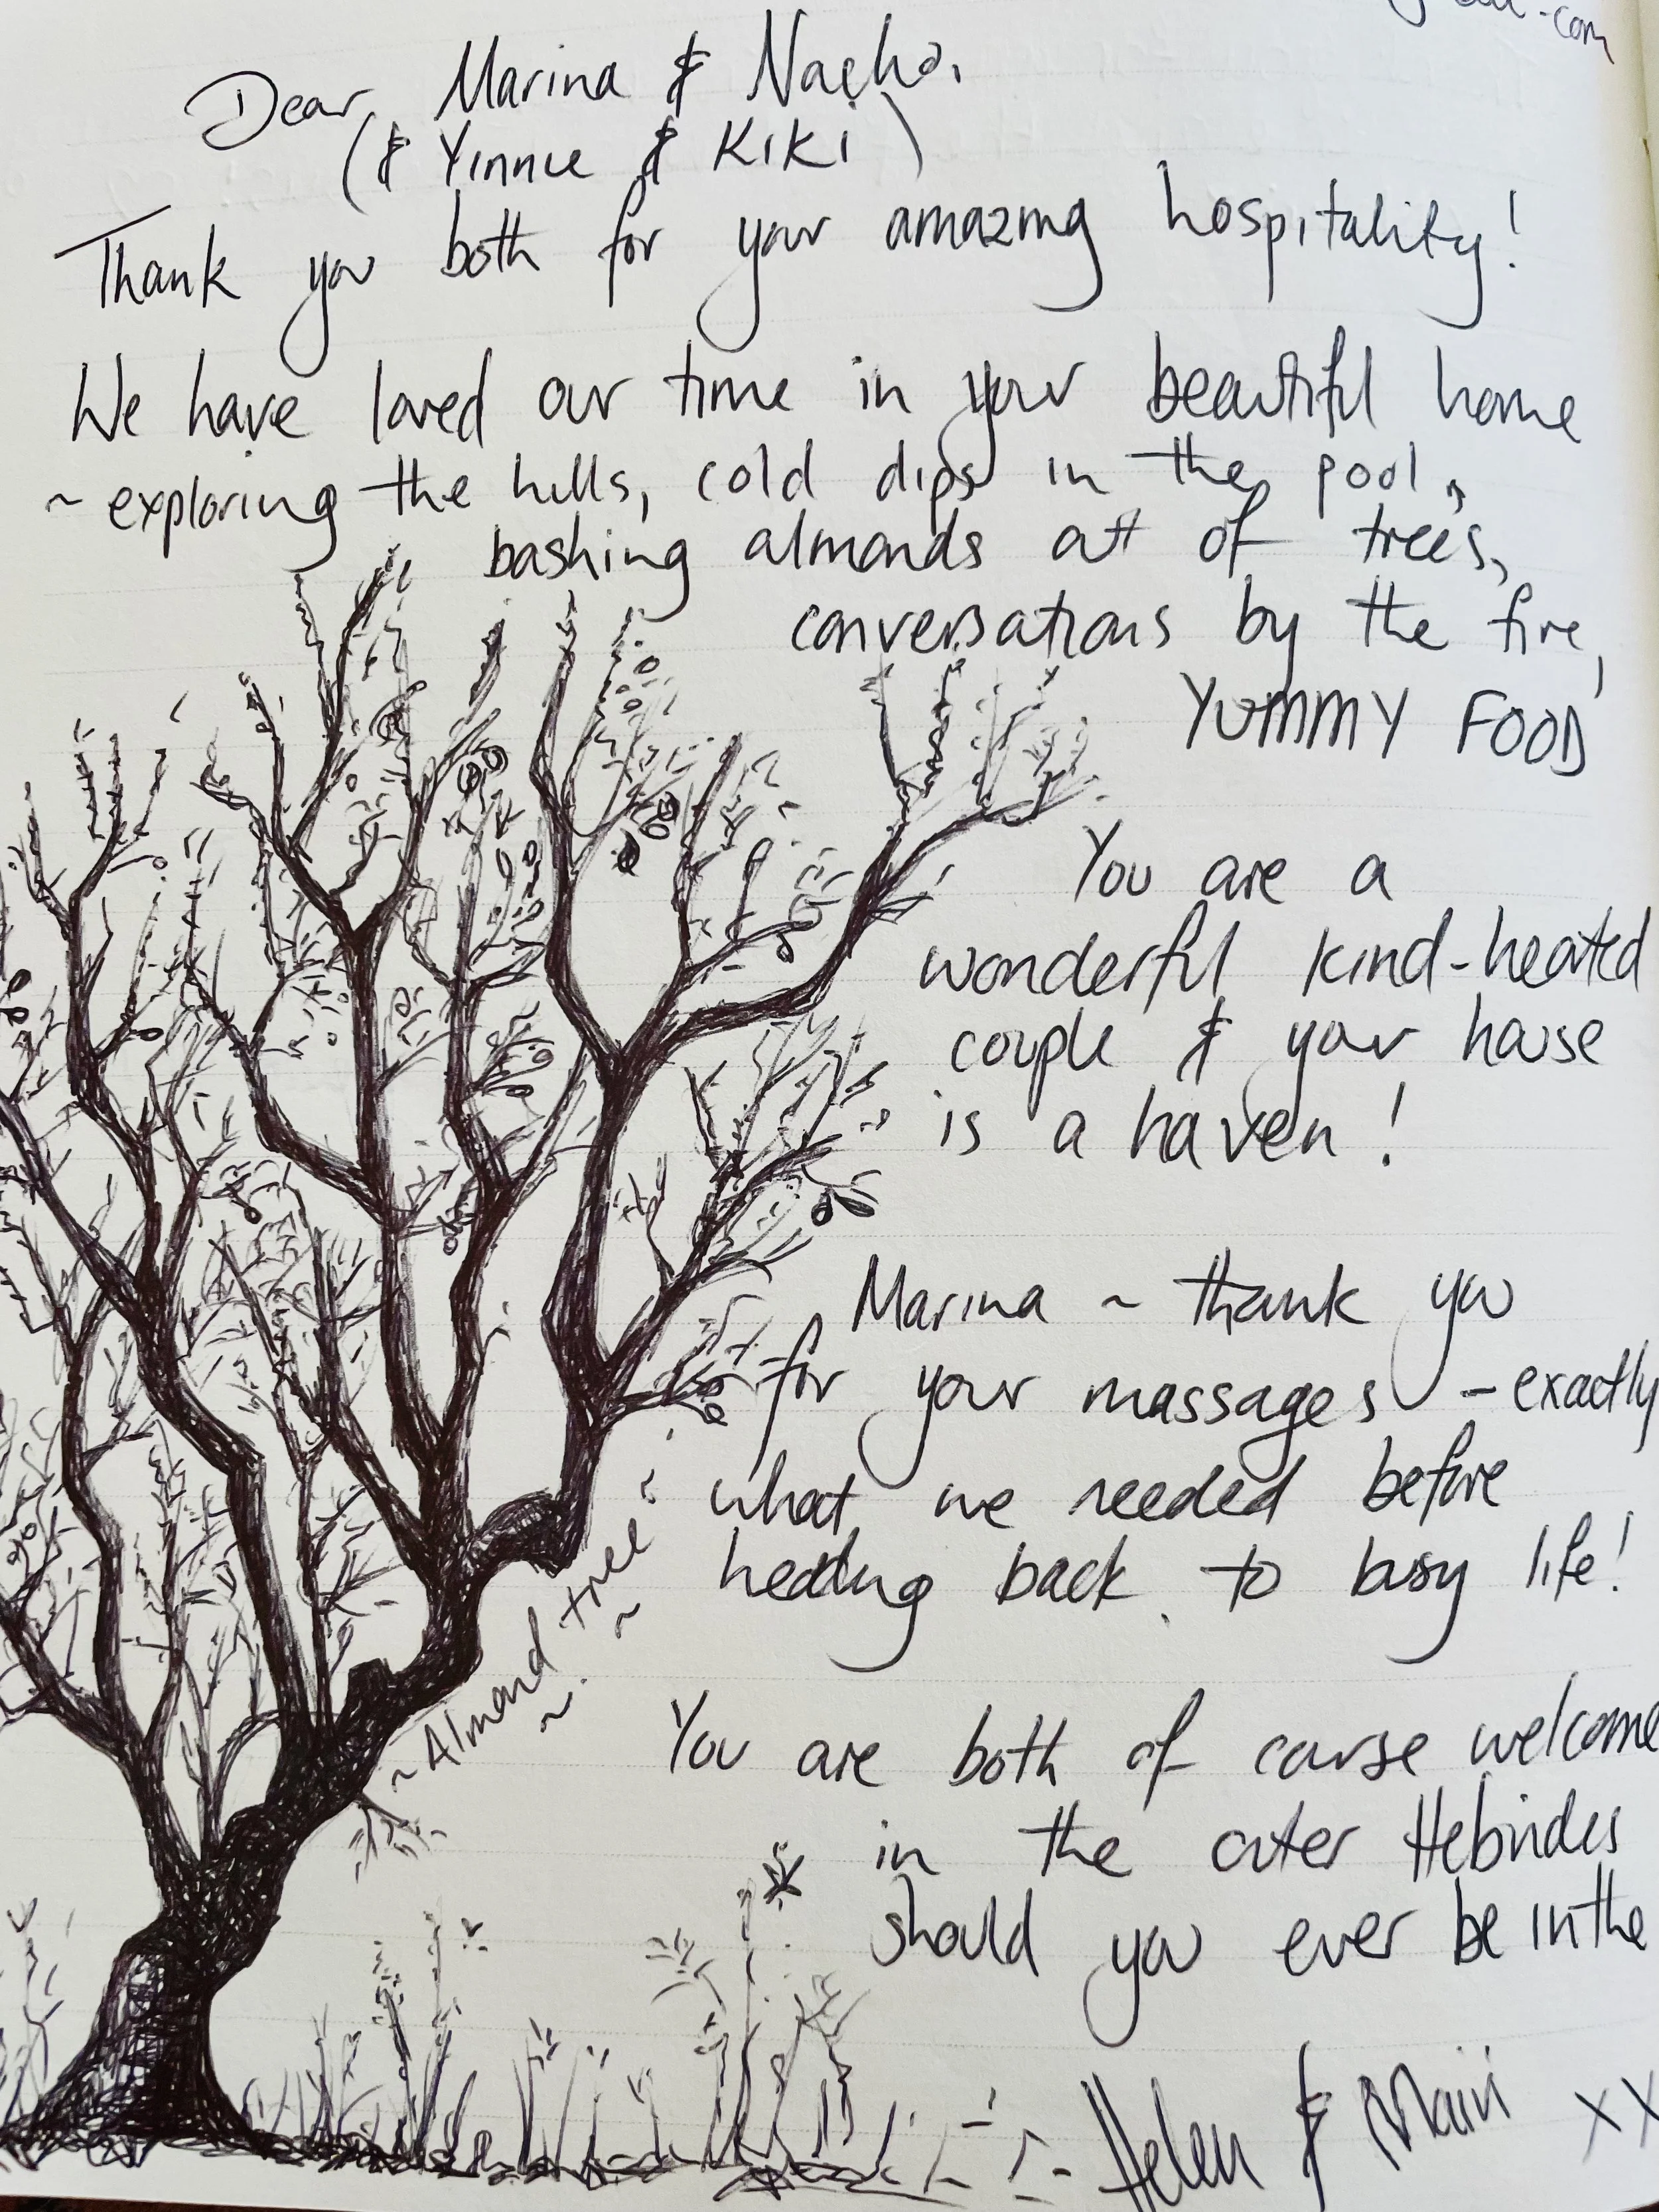 .com
Dear Marina & Nacho,
(& Yinnie & Kiki)
Thank you both for your amazing hospitality!
We have loved our time in your beautiful home
~ exploring the hills, cold dips in the pool,
bashing almonds out of trees,
conversations by the fire,
YUMMY FOOD
You are a
wonderful kind-hearted
couple & your house
is a haven!
Marina ~ thank you
for your massages - exactly
what we needed before
heading back to busy life!
~ Almond tree ~
You are both of course welcome
in the outer Hebrides
should you ever be in the
Helen & Mairi xx